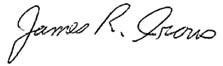 James R. Irons